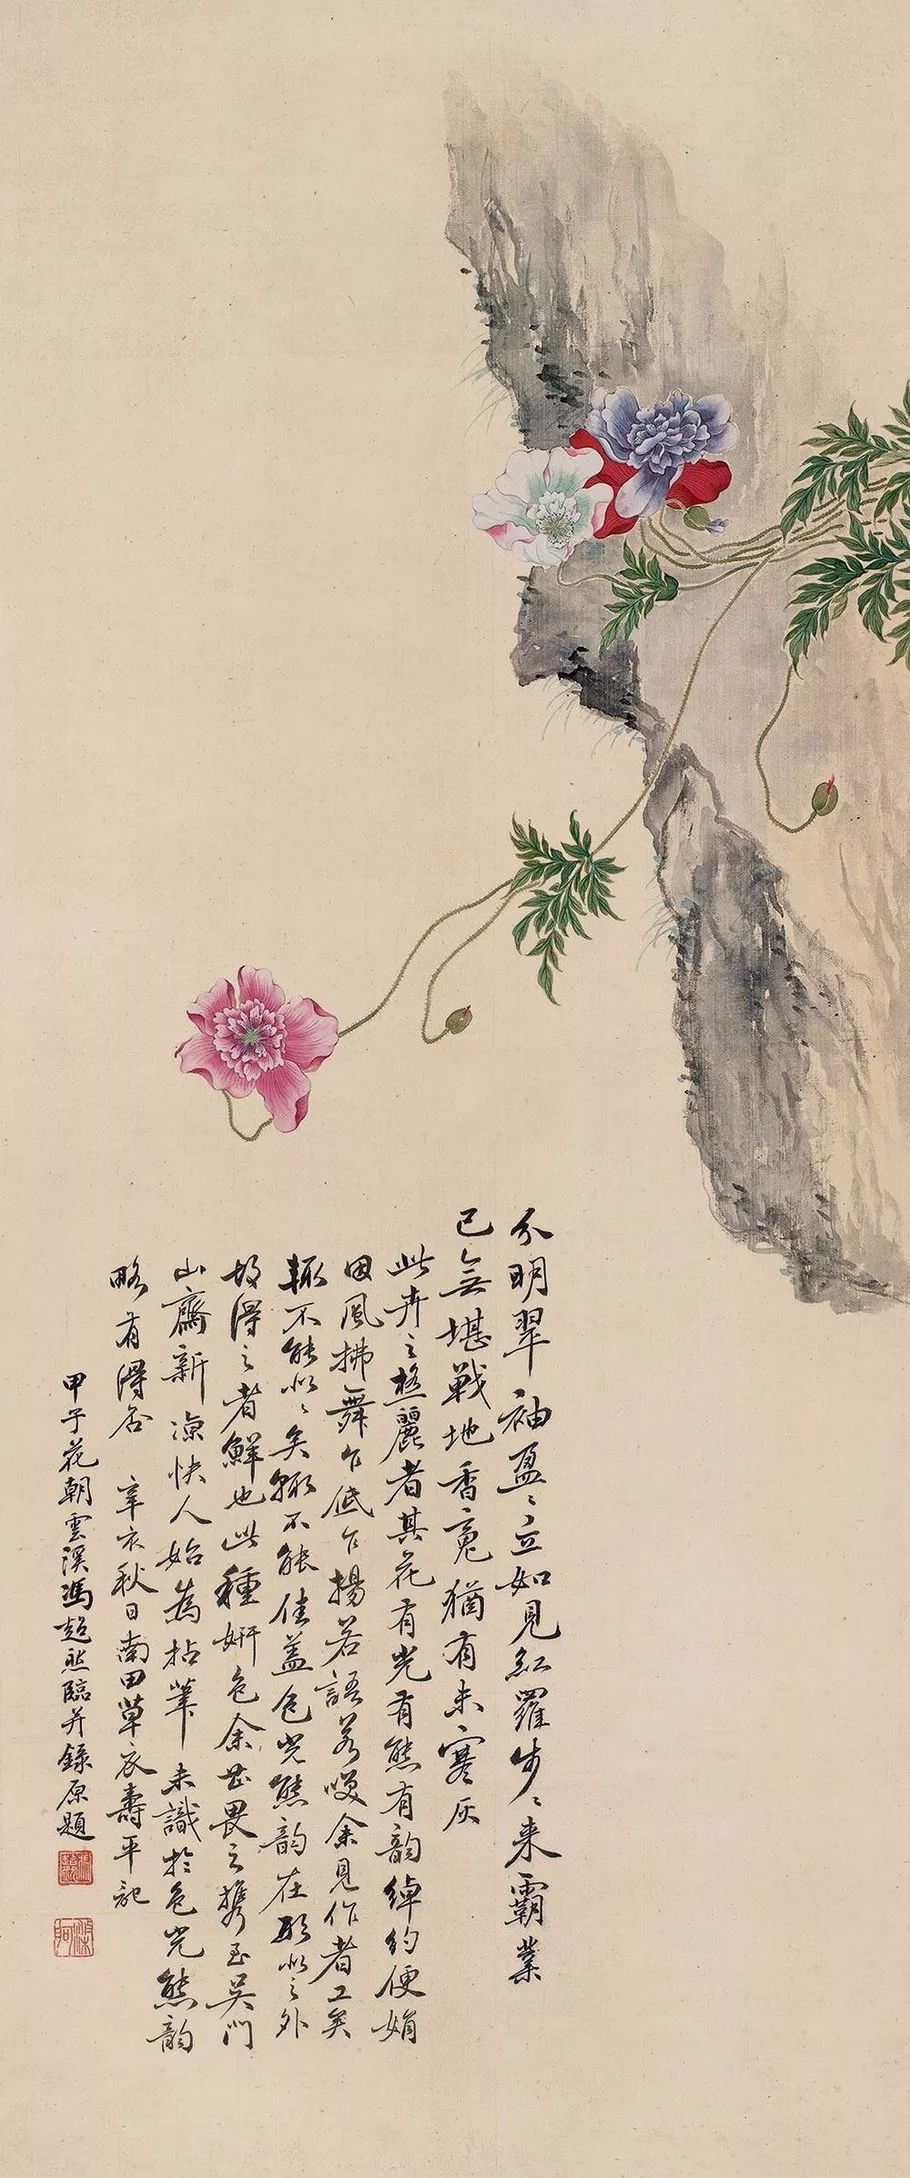 分明翠袖盈〻立如見紅羅步〻來霸業
已無堪戰地香魂猶有未寒灰
此卉之極麗者其花有光有態有韻綽約便娟
因風拂舞乍低乍揚若語若咲余見作者工矣
輒不能似〻矣輒不能佳蓋色光態韻在形似之外
故得之者鮮也此種妍色余甚畏之攜至吳門
山齋新涼快人始為拈筆未識於色光態韻
略有得否 辛亥秋日南田草衣壽平記
甲子花朝雲溪馮超然臨并錄原題